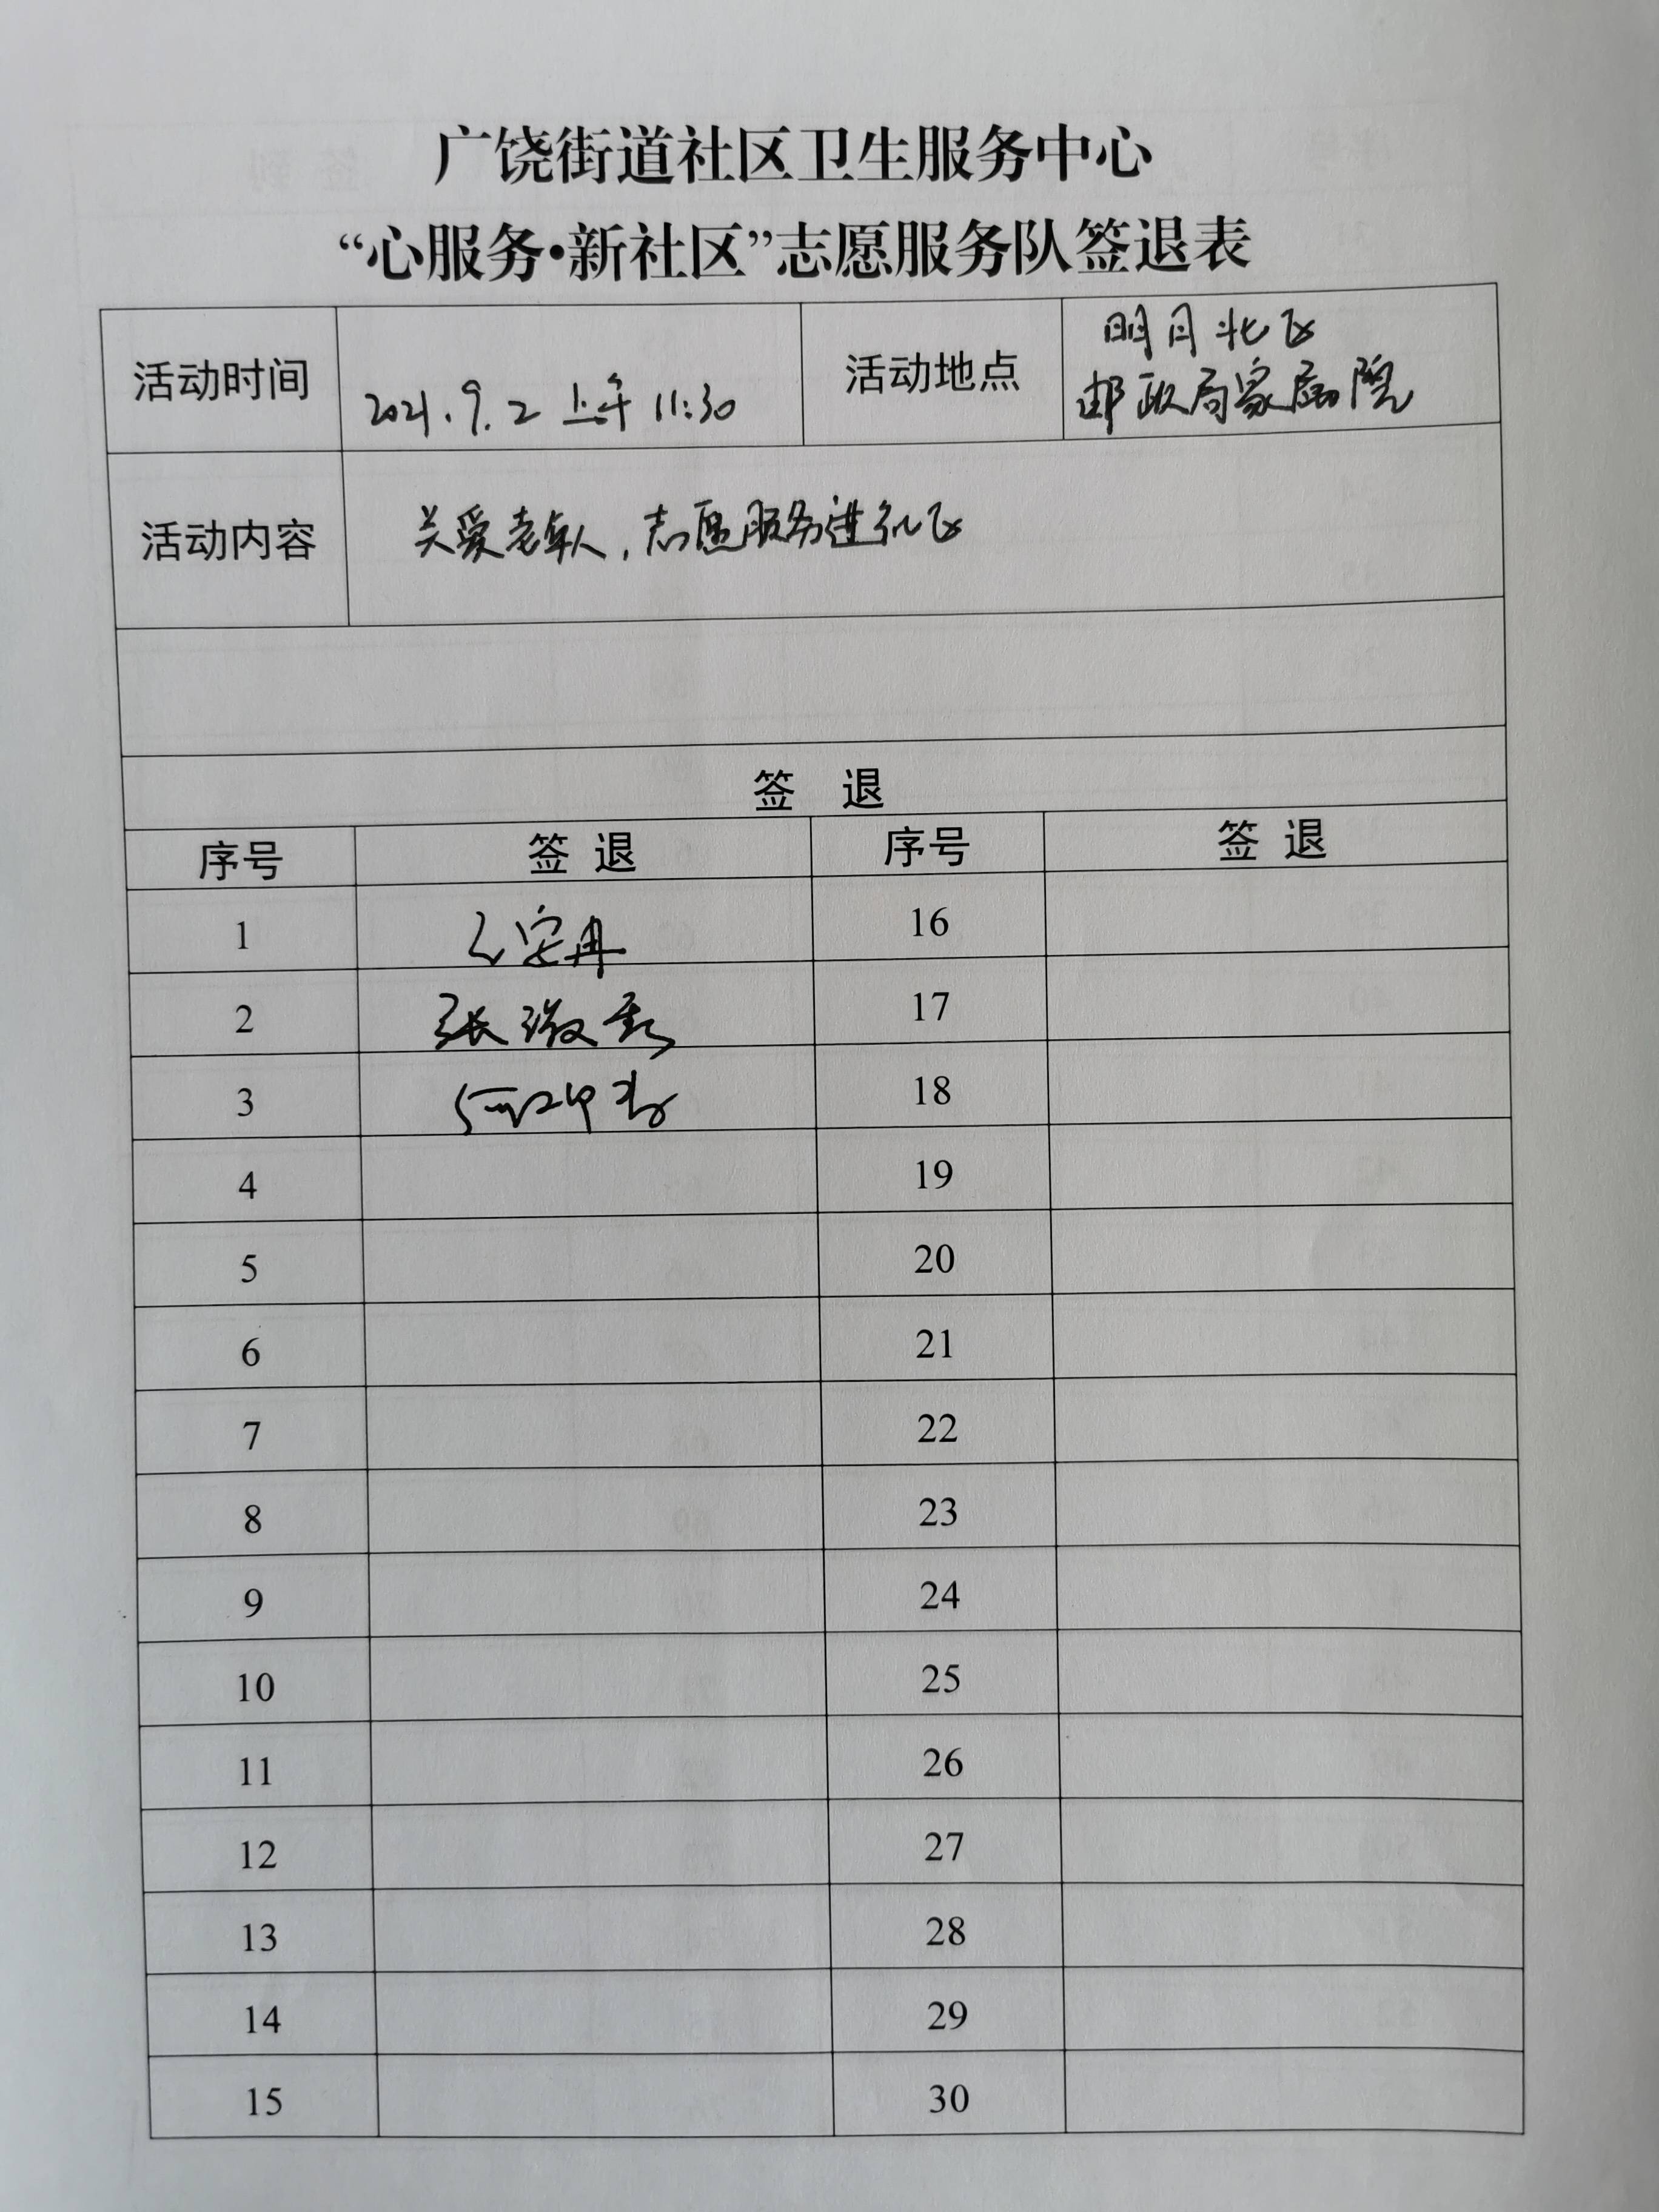 广饶街道社区卫生服务中心
“心服务•新社区”志愿服务队签退表
活动时间 2021.9.2 上午 11:30 活动地点 明月北区
邮政局家属院
活动内容 关爱老年人，志愿服务进社区
签 退
序号 签 退 序号 签 退
1 16
2 张 17
3 18
4 19
5 20
6 21
7 22
8 23
9 24
10 25
11 26
12 27
13 28
14 29
15 30